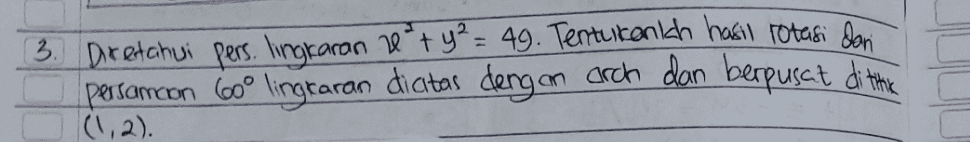 3. Diketahui pers. lingkaran x² + y² = 49. Tentukanlah hasil rotasi dari
persamaan 60° lingkaran diatas dengan arah dan berpusat dititik
(1,2).